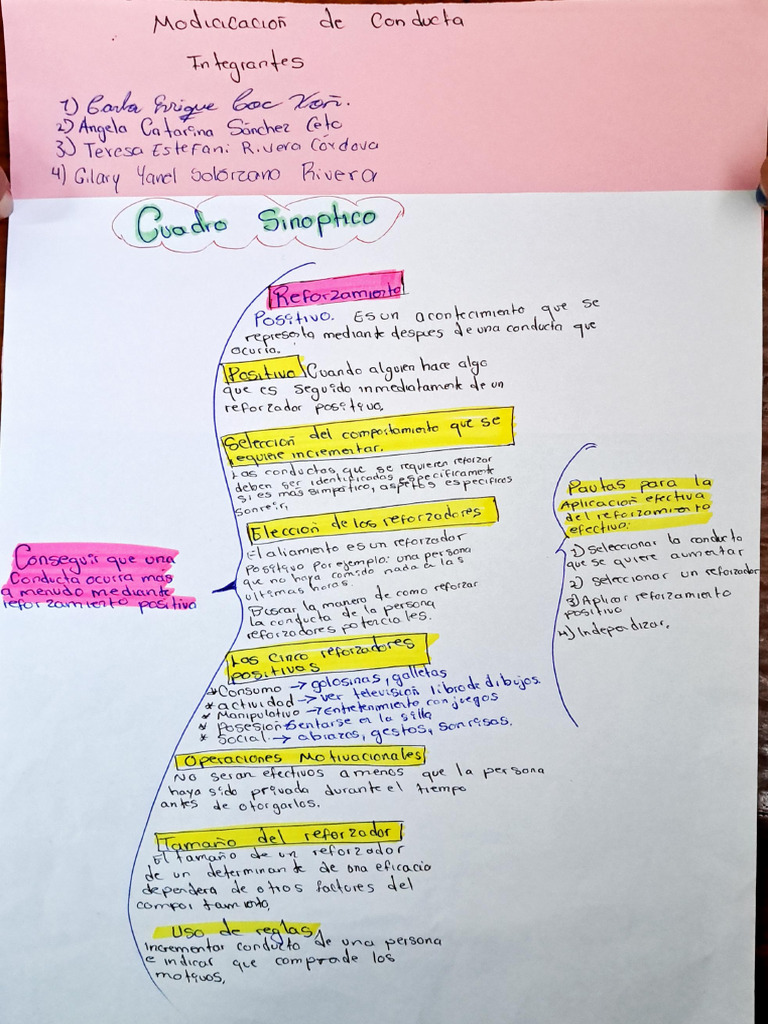 Modicicación de Conducta
Integrantes
1) Carla Enrique Coc Xoñ.
2) Angela Catarina Sánchez Ceto
3) Teresa Estefani Rivera Córdova
4) Gilary Yanel Solórzano Rivera
Cuadro Sinoptico
Reforzamiento
Positivo. Es un acontecimiento que se
represeta mediante despues de una conducta que
ocurra.
Positivo Cuando alguien hace algo
que es seguido inmediatamente de un
reforzador positivo,
Selección del comportamiento que se
requiere incrementar.
Las conductas que se requieren reforzar
deben ser identificadas específicamente
si es más simpático, aspetos específicos
sonreir,
Elección de los reforzadores
El aliamiento es un reforzador
positivo por ejemplo: una persona
que no haya comido nada a las
ultimas horas.
Buscar la manera de como reforzar
la conducta de la persona
reforzadores potenciales.
Los cinco reforzadores
positivas
* Consumo → golosinas, galletas
* actividad → ver televisión libro de dibujos.
* Manipulativo → entretenimiento con juegos
* Posesión sentarse en la silla
* Social. → abrazos, gestos, sonrisas.
Operaciones Motivacionales
No seran efectivos a menos que la persona
haya sido privada durante el tiempo
antes de otorgarlos.
Tamaño del reforzador
El tamaño de un reforzador
de un determinante de una eficacia
dependera de otros factores del
comportamiento,
Uso de reglas
Incrementar conducto de una persona
e indicar que comprade los
motivos,
Conseguir que una
Conducta ocurra mas
a menudo mediante
reforzamiento positivo
Pautas para la
Aplicación efectiva
del reforzamiento
efectivo:
1) Seleccionar la conducta
que se quiere aumentar
2) Seleccionar un reforzador
3) Aplicar reforzamiento
positivo
4) Independizar,